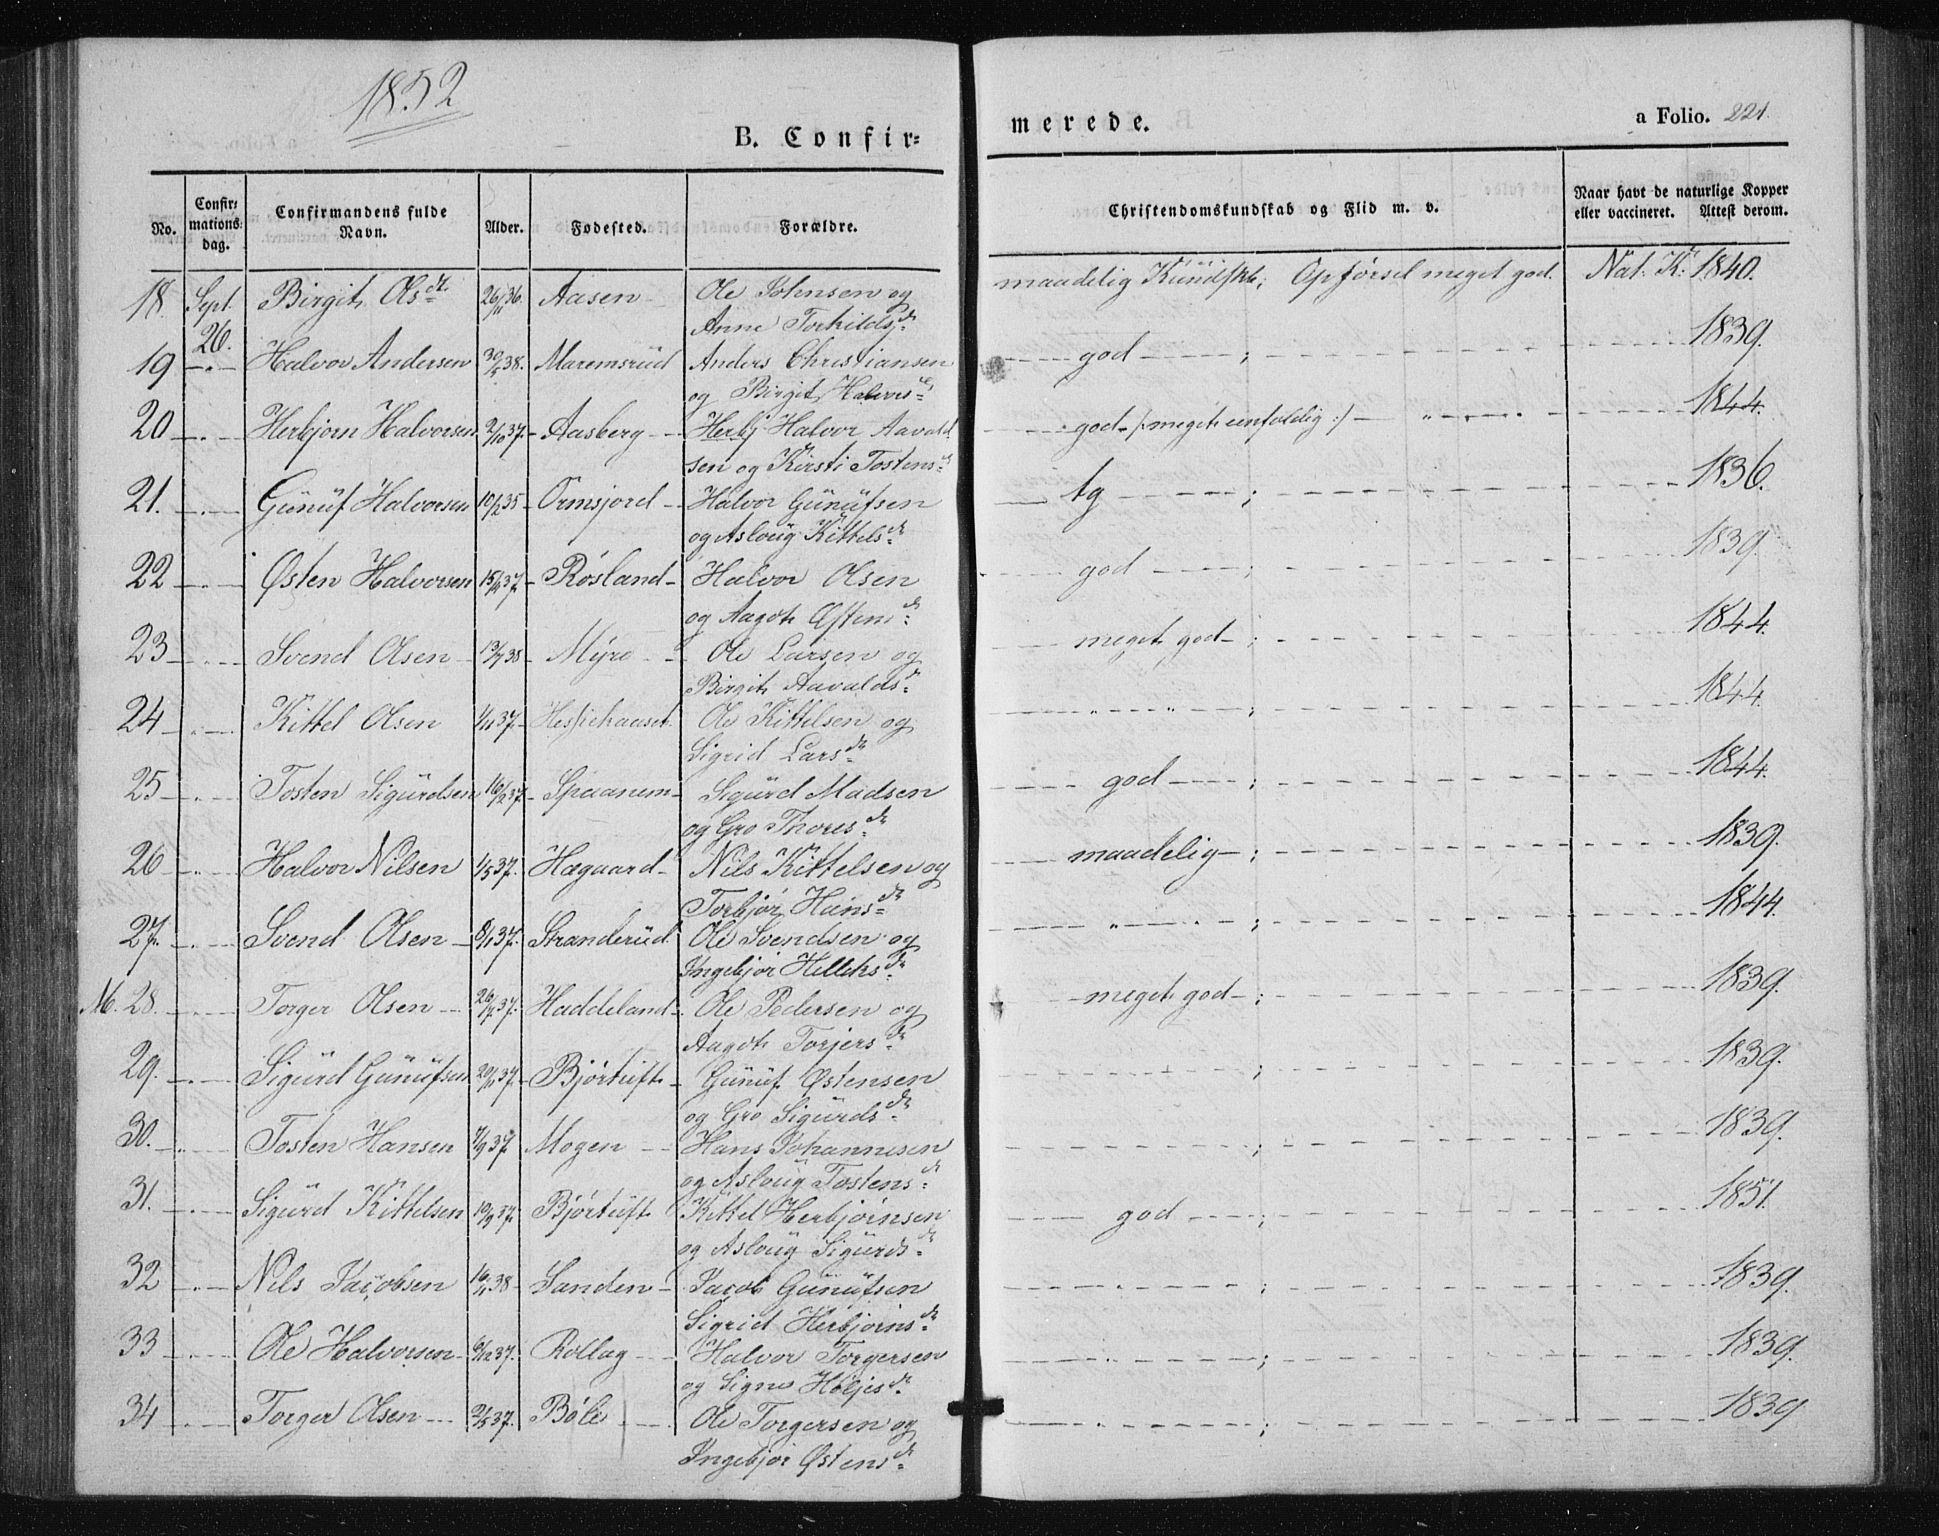 1852
B. Confir=
merede.
a Folio. 221.
No.
Confir=
mations=
dag.
Confirmandens fulde
Navn.
Alder.
Fødested.
Forældre.
Christendomskundskab og Flid m. v.
Naar havt de naturlige Kopper
eller vaccineret. Attest derom.
18. Sept. Birgit Olsdr 26/11 36. Aasen Ole Johnsen og maadelig Kundskb; Opførsel meget god. Nat: K: 1840.
26. Anne Torkildsdr
19 Halvor Andersen 30/4 38. Maremsrud Anders Christiansen god ; 1839.
og Birgit Halvorsdr
20 Herbjørn Halvorsen 2/10 37. Aasberg Herbj Halvor Aavald god /: meget eenfoldig :/ 1844.
sen og Kirsti Tostensdr
21. Gunuf Halvorsen 10/2 35 Ormsjord Halvor Gunufsen tg ; 1836.
og Asloug Kittelsdr
22 Østen Halvorsen 15/10 37. Røsland Halvor Olsen god ; 1839.
og Aagot Østensdr
23 Svend Olsen 13/1 38 Myre Ole Larsen og meget god ; 1844.
Birgit Aavaldsdr
24 Kittel Olsen 1/11 37. Ole Kittelsen og " ; 1844.
Sigrid Larsdr
25 Tosten Sigurdsen 16/2 37. Spaanem Sigurd Madsen god ; 1844.
og Gro Thoresdr
26 Halvor Nilsen 1/5 37. Hægaard Nils Kittelsen og maadelig ; 1839.
Torbjør Hansdr
27. Svend Olsen 8/1 37. Stranderud Ole Svendsen og " ; 1844.
Ingebjør Helleksdr
M. 28. Torger Olsen 37. Haddeland Ole Pedersen og meget god ; 1839.
Aagot Torjersdr
29. Sigurd Gunufsen 20/11 37. Bjørtuft Gunuf Østensen ; 1839.
og Gro Sigurdsdr
30. Tosten Hansen 7/9 37. Mogen Hans Johannesen ; 1839.
og Asloug Tostensdr
31. Sigurd Kittelsen 19/9 37. Bjørtuft Kittel Herbjørnsen god ; 1851.
og Asloug Sigurdsdr
32 Nils Jacobsen 16/1 38 Sanden Jacob Gunufsen ; 1839.
Sigrid Herbjørnsdr
33 Ole Halvorsen 6/12 37. Rollag Halvor Torgersen ; 1839.
og Signe Høljesdr
34 Torger Olsen 2/5 37. Bøle Ole Torgersen og ; 1839
Ingebjør Østensdr